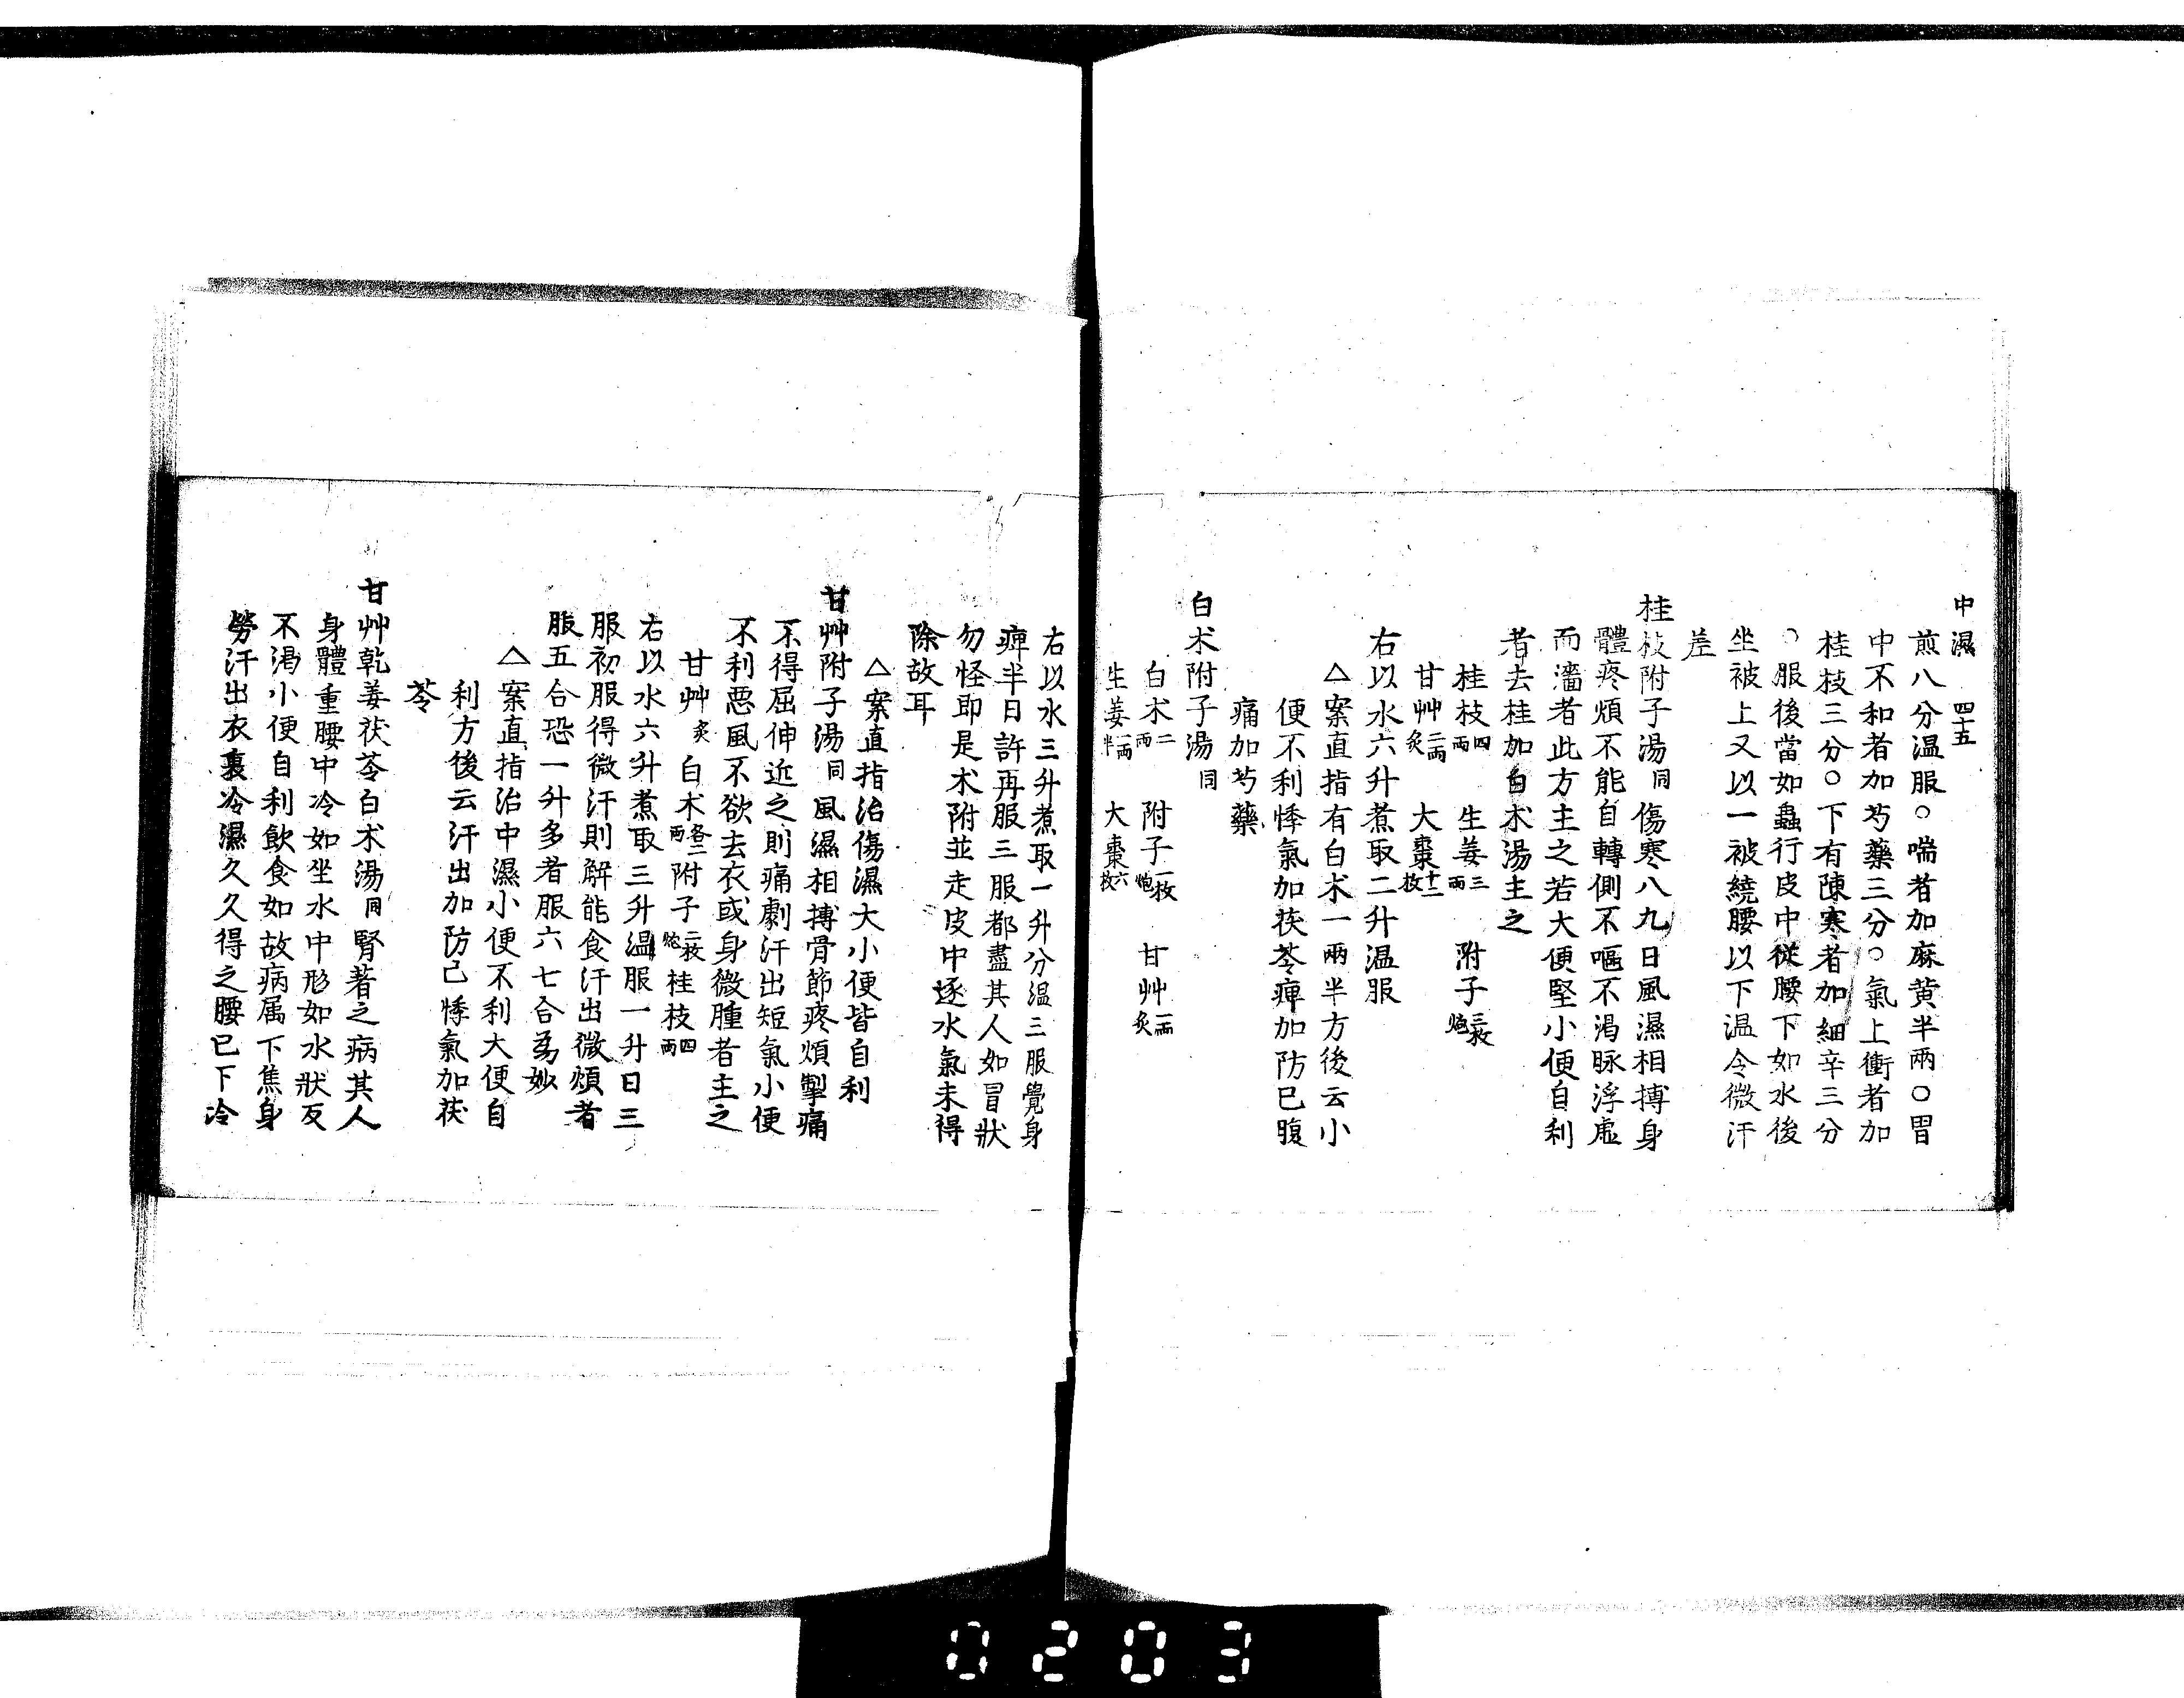 中濕　四十五
煎八分温服○喘者加麻黄半兩○胃
中不和者加芍藥三分○氣上衝者加
桂枝三分○下有陳寒者加細辛三分
○服後當如蟲行皮中從腰下如水後
坐被上又以一被繞腰以下温令微汗
差
桂枝附子湯同　傷寒八九日風濕相搏身
體疼煩不能自轉側不嘔不渇脉浮虛
而濇者此方主之若大便堅小便自利
者去桂加白朮湯主之
桂枝四兩　生姜三兩　附子三枚炮
甘艸二兩炙　大棗十二枚
右以水六升煮取二升温服
△案直指有白朮一兩半方後云小
便不利悸氣加茯苓痺加防已腹
痛加芍藥
白朮附子湯同
白朮二兩　附子一枚炮　甘艸一兩炙
生姜一兩半　大棗六枚
右以水三升煮取一升分温三服覺身
痺半日許再服三服都盡其人如冒狀
勿怪即是朮附並走皮中逐水氣未得
除故耳
△案直指治傷濕大小便皆自利
甘艸附子湯同　風濕相搏骨節疼煩掣痛
不得屈伸近之則痛劇汗出短氣小便
不利惡風不欲去衣或身微腫者主之
甘艸炙　白朮各二兩　附子二枚炮　桂枝四兩
右以水六升煮取三升温服一升日三
服初服得微汗則解能食汗出微煩者
服五合恐一升多者服六七合為妙
△案直指治中濕小便不利大便自
利方後云汗出加防已悸氣加茯
苓
甘艸乾姜茯苓白朮湯同　腎著之病其人
身體重腰中冷如坐水中形如水狀反
不渇小便自利飲食如故病属下焦身
勞汗出衣裏冷濕久久得之腰已下冷
0203